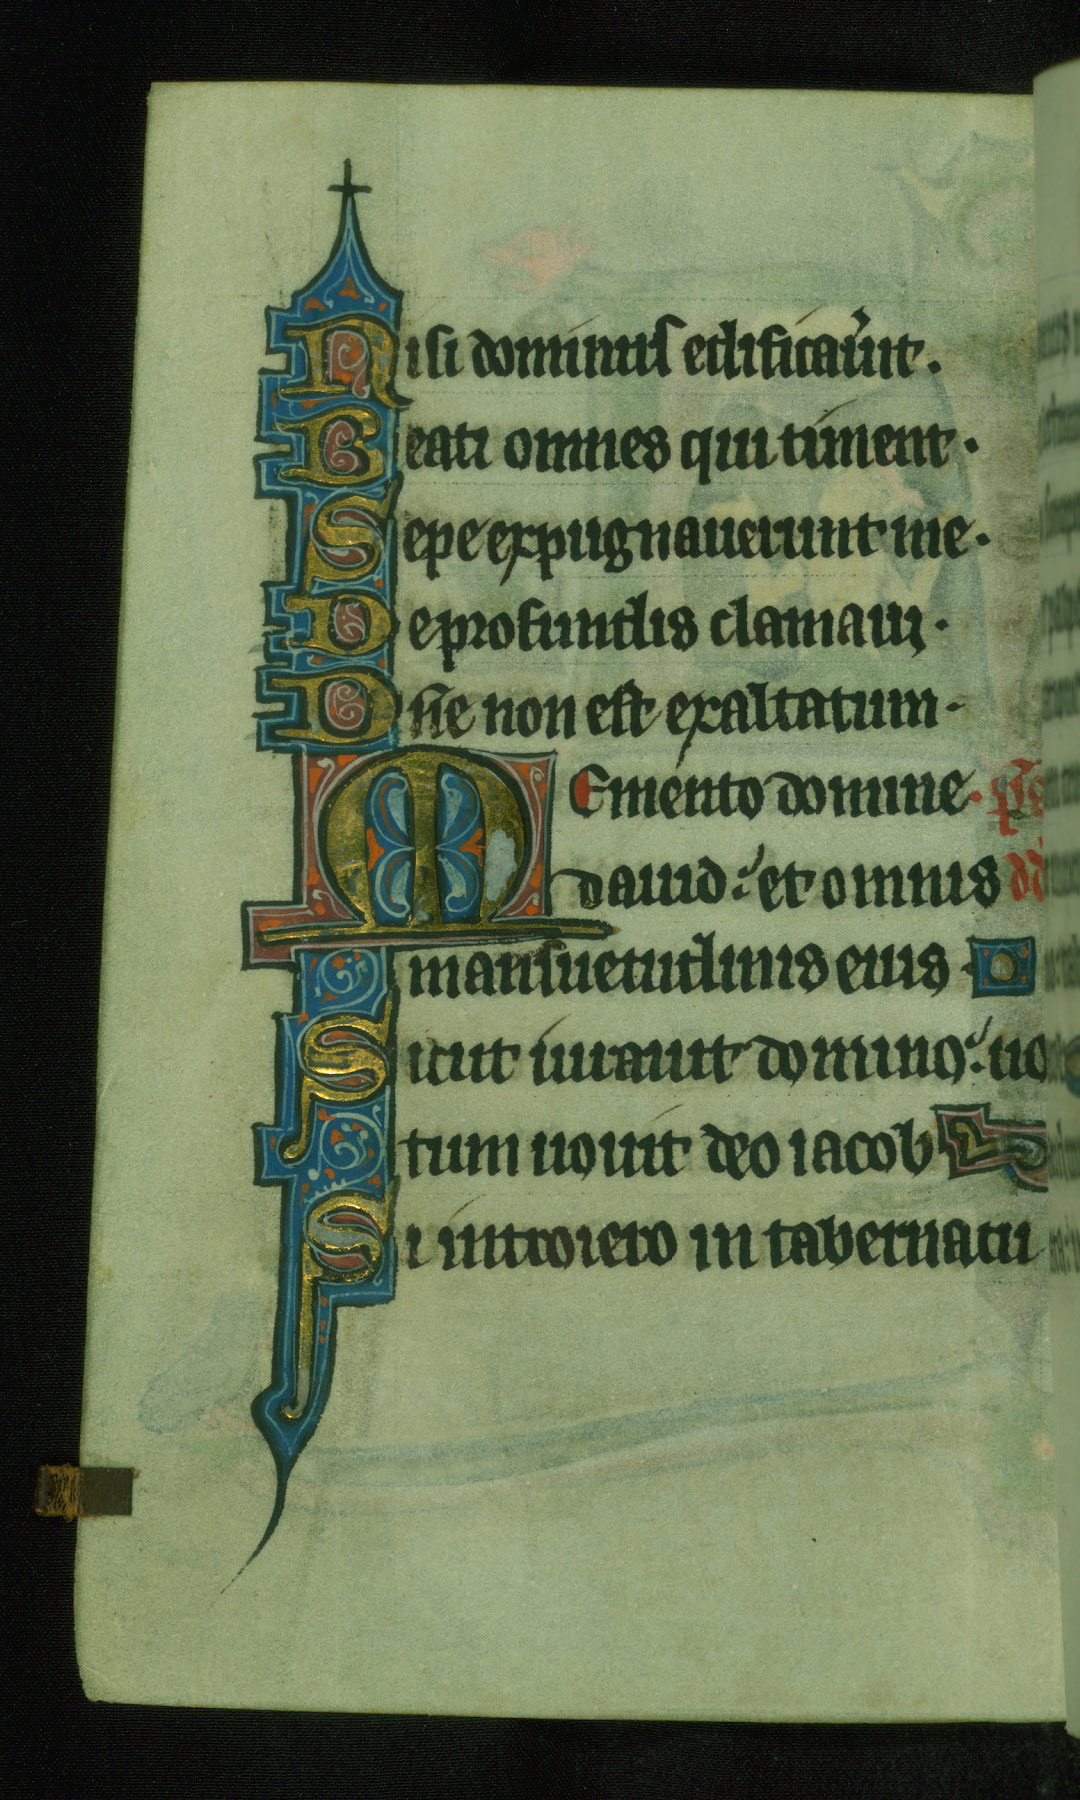 Nisi dominus edificau̅it.
Beati omnes qui timent.
Sepe expugnauerunt me.
De profundis clamaui.
Dn̅e non est exaltatum.
MEmento domine. ps̅
dauid: et omnis dd̅
mansuetudinis eius.
Sicut iurauit domino: uo
tum uouit deo iacob
Si introiero in tabernacu